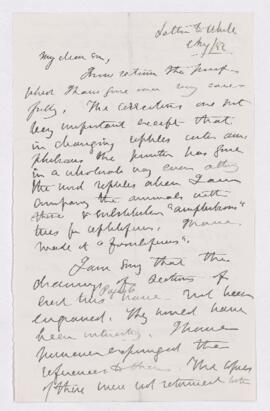 Letter to White
Aug/82
My dear Sir,
I now return the proofs
which I have gone over very care
fully. The corrections are not
very important except that
in changing reptiles into am
phibians the printer has gone
in a wholesale way even
the word reptiles when I am
comparing the animals with
these & substituted "amphibians"
for reptiles. I have
made it a
I am sorry that the
drawings of sections of
erect trees have not been
engraved. They would have
been interesting. I have
however expunged the
references to them. The types
of these were not returned with